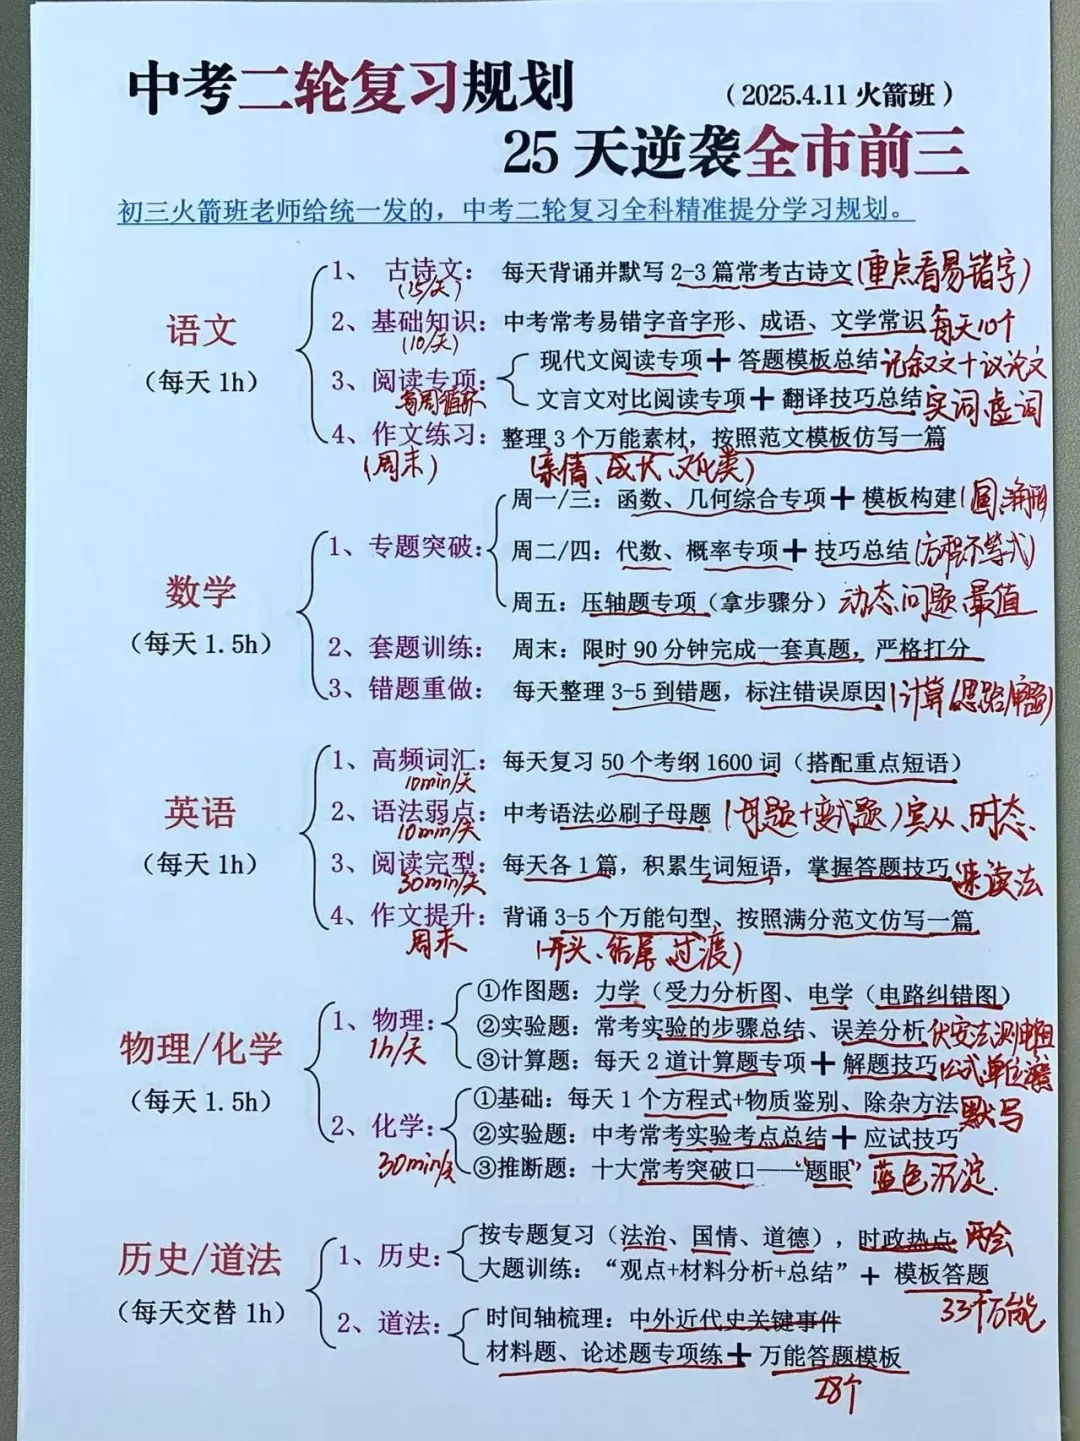 中考二轮复习规划
（2025.4.11 火箭班）
25 天逆袭全市前三
初三火箭班老师给统一发的，中考二轮复习全科精准提分学习规划。
语文
（每天 1h）
1、 古诗文： 每天背诵并默写 2-3 篇常考古诗文（重点看易错字）
（15/天）
2、基础知识：中考常考易错字音字形、成语、文学常识 每天10个
（10/天）
3、阅读专项：
每周循环
现代文阅读专项＋答题模板总结 记叙文＋议论文
文言文对比阅读专项＋翻译技巧总结 实词、虚词
4、作文练习：整理 3 个万能素材，按照范文模板仿写一篇
（周末）
（亲情、成长、文化类）
数学
（每天 1.5h）
1、专题突破：
周一/三：函数、几何综合专项＋模板构建（圆、
周二/四：代数、概率专项＋技巧总结（方程不等式）
周五：压轴题专项（拿步骤分） 动态问题、最值
2、套题训练： 周末：限时 90 分钟完成一套真题，严格打分
3、错题重做： 每天整理 3-5 到错题，标注错误原因（计算/思路/审题）
英语
（每天 1h）
1、高频词汇：每天复习 50 个考纲 1600 词（搭配重点短语）
10min/天
2、语法弱点：中考语法必刷子母题（母题＋变式题）宾从、时态、
10min/天
3、阅读完型：每天各 1 篇，积累生词短语，掌握答题技巧 速读法
30min/天
4、作文提升：背诵 3-5 个万能句型、按照满分范文仿写一篇
周末
（开头、结尾、过渡）
物理/化学
（每天 1.5h）
1、物理：
1h/天
①作图题：力学（受力分析图、电学（电路纠错图）
②实验题：常考实验的步骤总结、误差分析 伏安法测电阻
③计算题：每天 2 道计算题专项＋解题技巧 公式、单位
2、化学：
30min/天
①基础：每天 1 个方程式+物质鉴别、除杂方法 默写
②实验题：中考常考实验考点总结＋应试技巧
③推断题：十大常考突破口——“题眼” 蓝色沉淀.
历史/道法
（每天交替 1h）
1、历史：
按专题复习（法治、国情、道德），时政热点 两会
大题训练：“观点+材料分析+总结”＋ 模板答题
33个万能
2、道法：
时间轴梳理：中外近代史关键事件
材料题、论述题专项练＋万能答题模板
28个